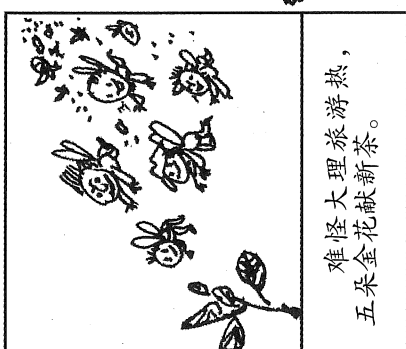 难怪大理旅游热，
五朵金花献新茶。